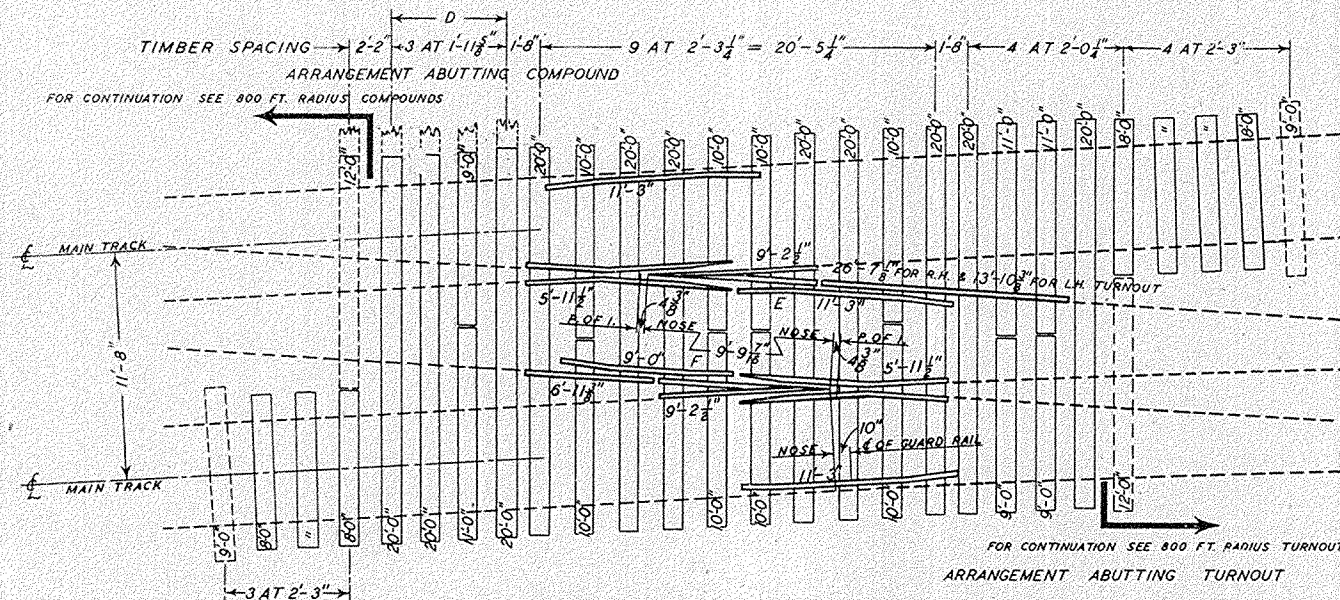 D
TIMBER SPACING 2'-2" 3 AT 1'-11 5/8" 1'-8" 9 AT 2'-3 1/4" = 20'-5 1/4" 1'-8" 4 AT 2'-0 1/4" 4 AT 2'-3"
ARRANGEMENT ABUTTING COMPOUND
FOR CONTINUATION SEE 800 FT. RADIUS COMPOUNDS
12'-0" 9'-0" 20'-0" 10'-0" 20'-0" 20'-0" 10'-0" 10'-0" 20'-0" 20'-0" 10'-0" 20'-0" 20'-0" 11'-0" 11'-0" 20'-0" 18'-0" " " 18'-0" 9'-0"
11'-3"
℄ MAIN TRACK
9'-2 1/2"
26'-7 1/8" FOR R.H. & 13'-10 3/8" FOR L.H. TURNOUT
5'-11 1/2" 4 3/8" E 11'-3"
P. OF I. NOSE NOSE P. OF I.
11'-8"
9'-0" F 9'-9 7/16" 4 3/8" 5'-11 1/2"
6'-11 3/8" 9'-2 1/2"
10"
NOSE ℄ OF GUARD RAIL
11'-3"
℄ MAIN TRACK
9'-0" 8'-0" " 8'-0" 20'-0" 20'-0" 11'-0" 20'-0" 10'-0" 10'-0" 10'-0" 10'-0" 9'-0" 9'-0" 12'-0"
FOR CONTINUATION SEE 800 FT. RADIUS TURNOUT
ARRANGEMENT ABUTTING TURNOUT
3 AT 2'-3"